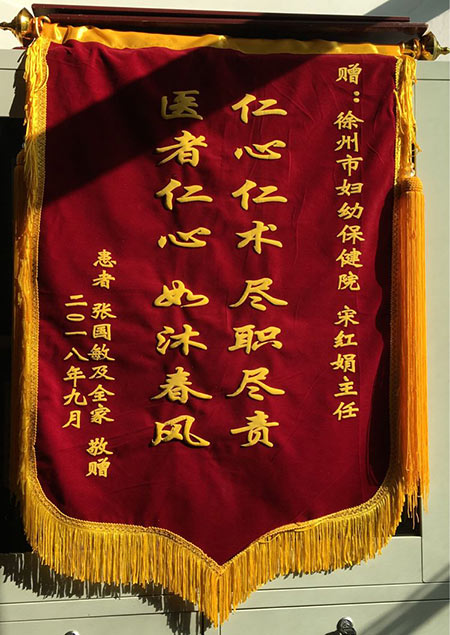 赠：徐州市妇幼保健院 宋红娟主任
仁心仁术 尽职尽责
医者仁心 如沐春风
患者 张国敏及全家 敬赠
二〇一八年九月